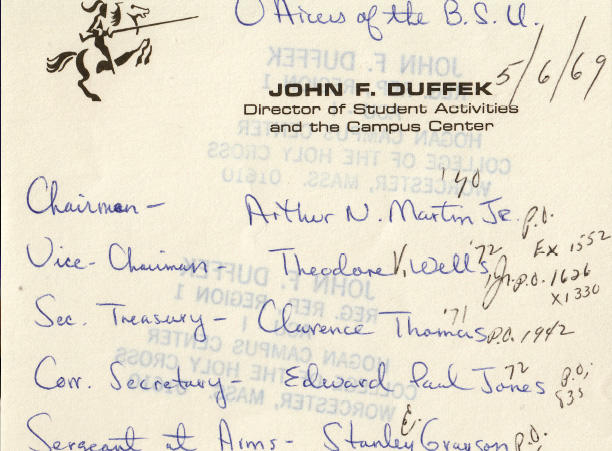 Officers of the B.S.U.
5/6/69
JOHN F. DUFFEK
Director of Student Activities
and the Campus Center
Chairman - Arthur N. Martin Jr. '70 P.O.
EX 1552
Vice-Chairman - Theodore V. Wells, Jr. '72 P.O. 1626
X1330
Sec. Treasury - Clarence Thomas '71 P.O. 1942
Corr. Secretary - Edward Paul Jones 72 P.O. 835
Sergeant at Arms - Stanley E. Grayson P.O.
JOHN F. DUFFEK
REG. REP. REGION 1
ACU - I
HOGAN CAMPUS CENTER
COLLEGE OF THE HOLY CROSS
WORCESTER, MASS. 01610
JOHN F. DUFFEK
REG. REP. REGION 1
HOGAN CAMPUS CENTER
COLLEGE OF THE HOLY CROSS
WORCESTER, MASS. 01610